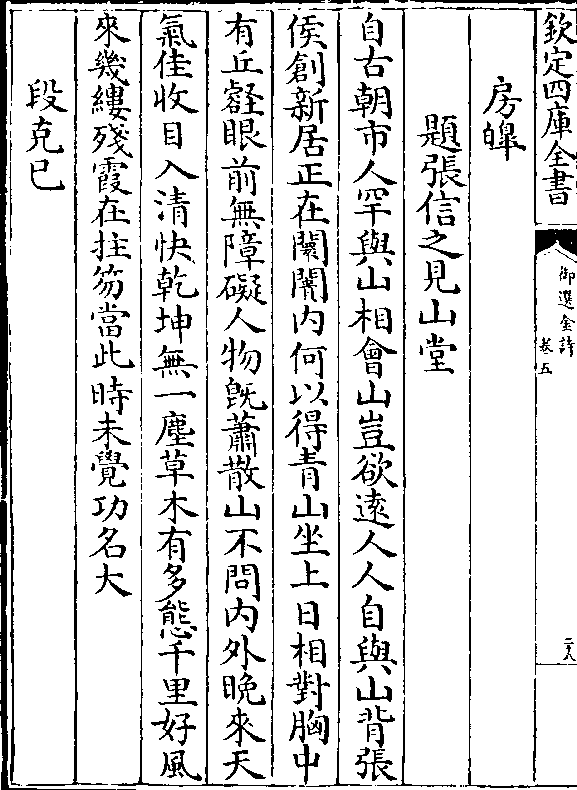 欽定四庫全書
御選金詩
卷五
二八
房皥
題張信之見山堂
自古朝市人罕與山相會山豈欲逺人人自與山背張
侯創新居正在闤闠内何以得青山坐上日相對胸中
有丘壑眼前無障礙人物旣蕭散山不問内外晩來天
氣佳收目入清快乾坤無一塵草木有多態千里好風
來幾縷殘霞在拄笏當此時未覺功名大
段克已